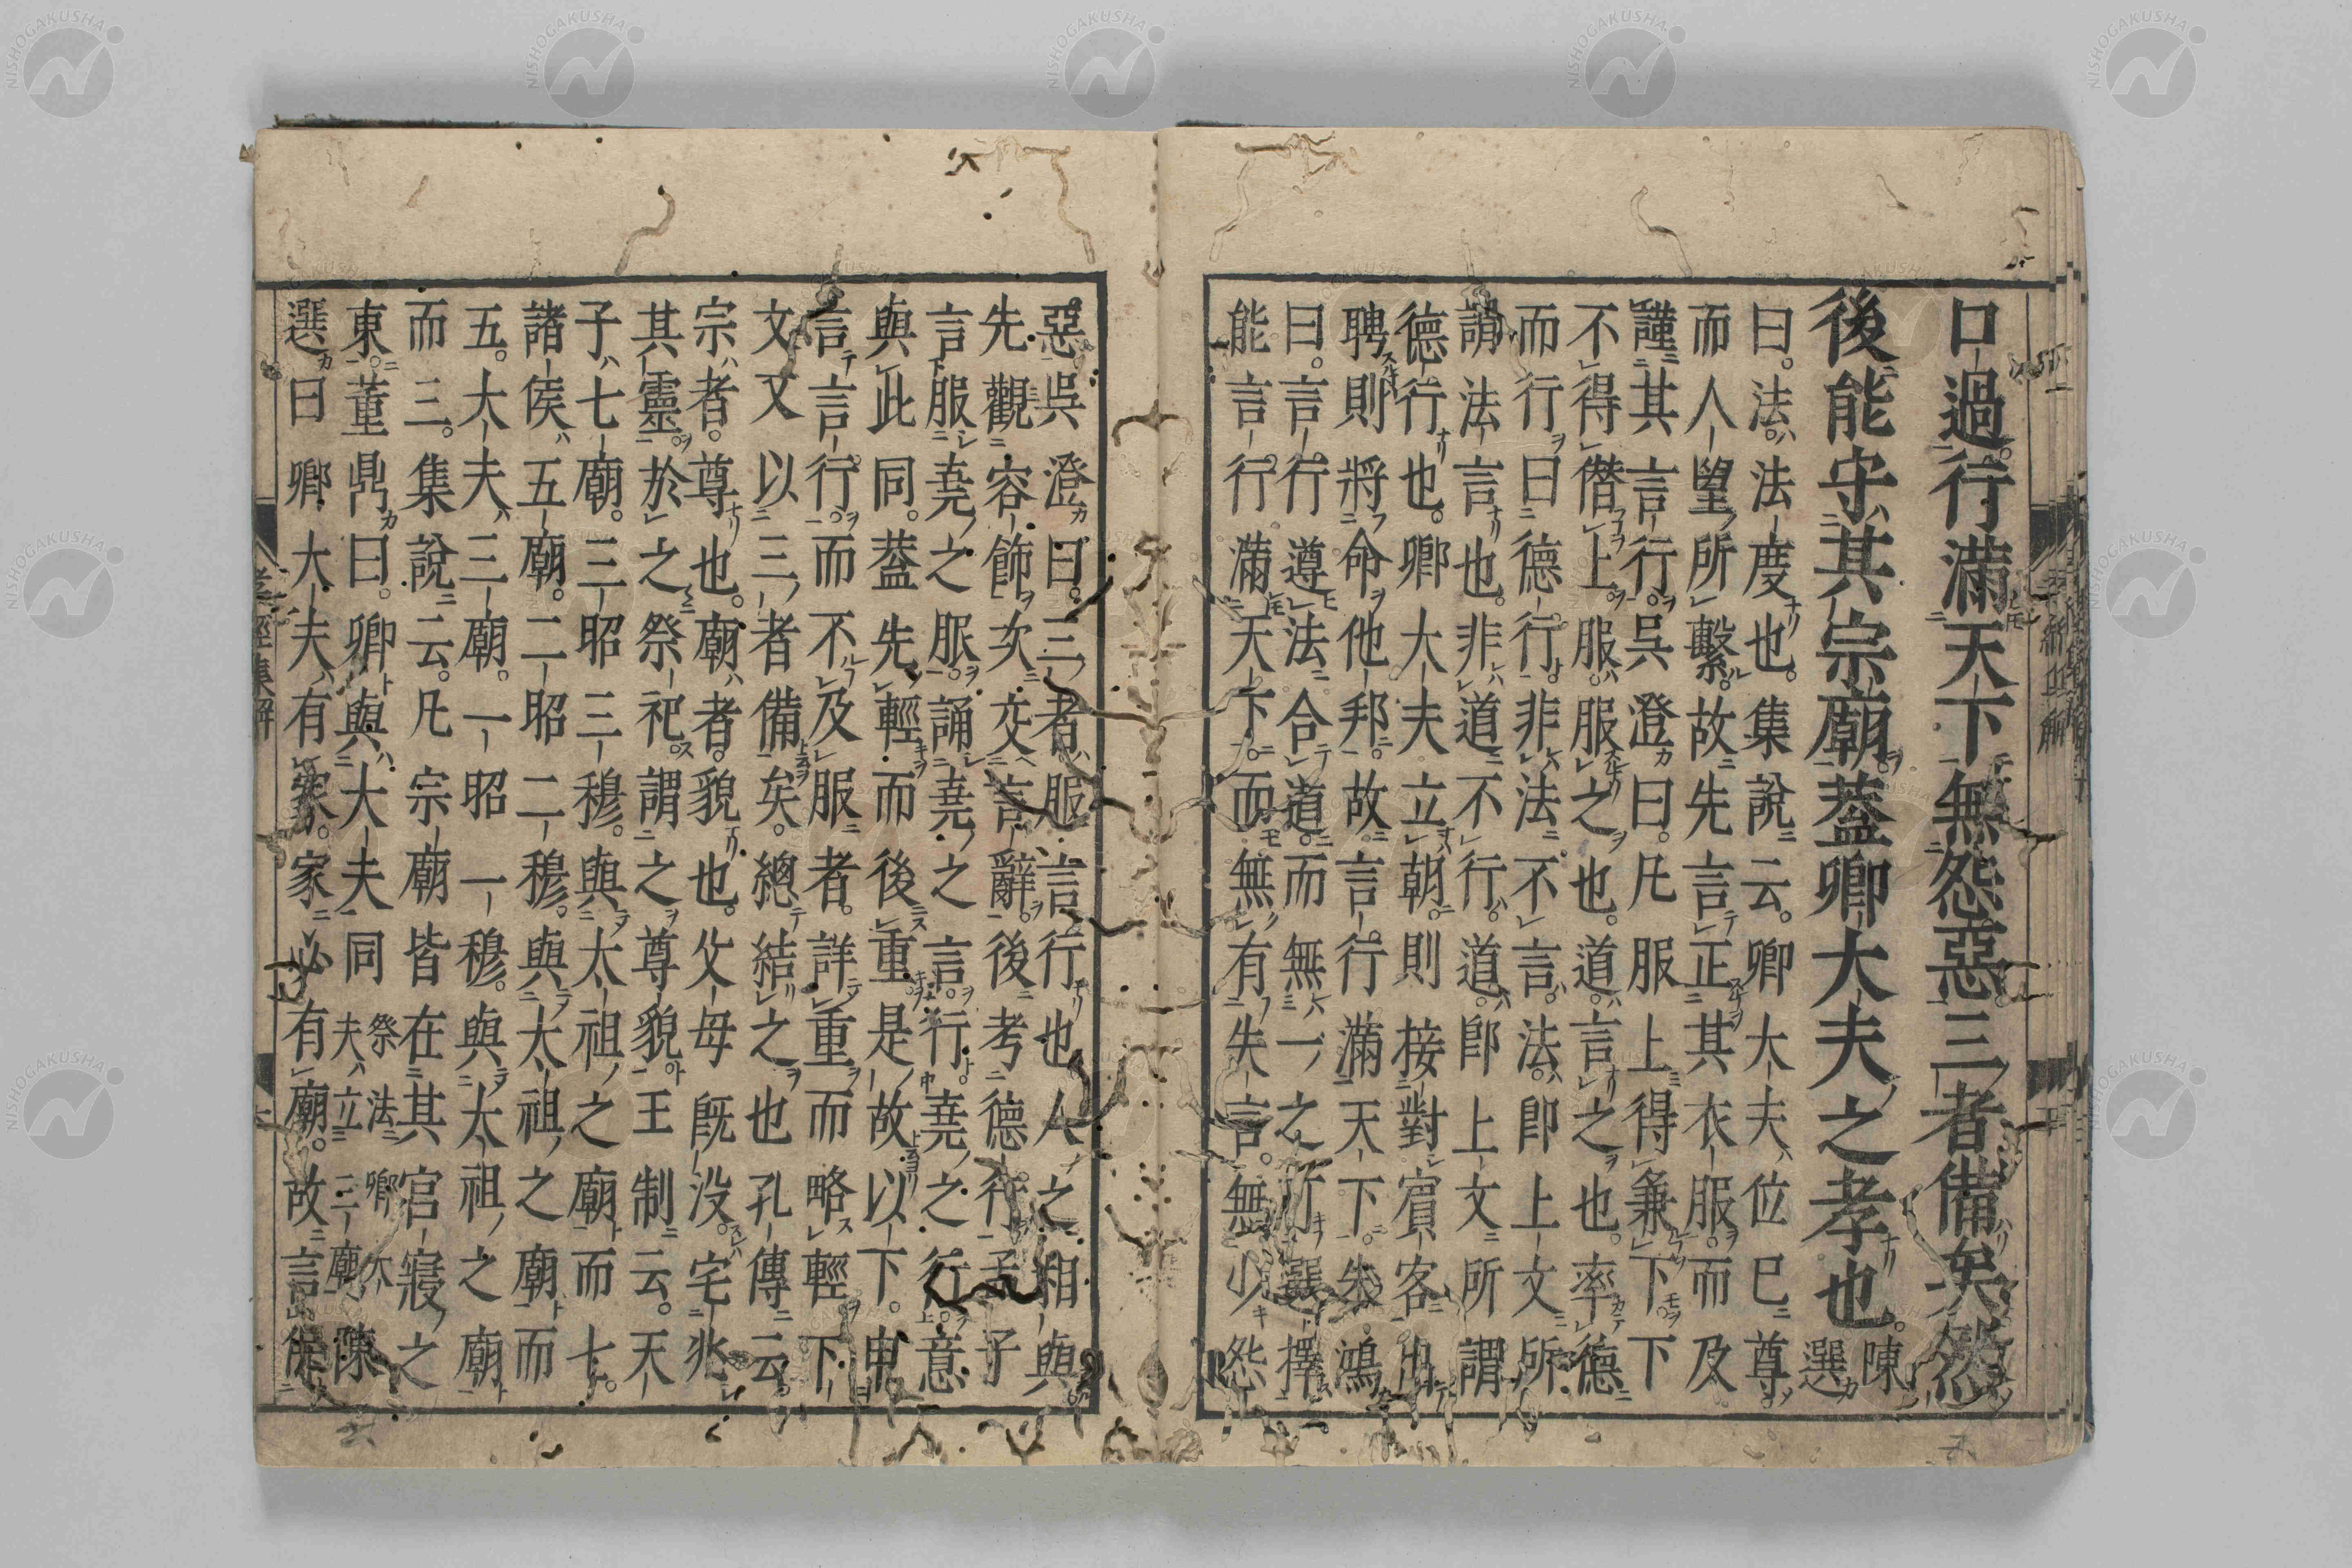 口過行滿天下無怨惡三者備矣然
後能守其宗廟蓋卿大夫之孝也陳選
曰法法度也集說云卿大夫位已尊
而人望所繫故先言正其衣服而及
謹其言行吳澄曰凡服上得兼下下
不得僭上服服之也道言之也率德
而行曰德行非法不言法即上文所
謂法言也非道不行道即上文所謂
德行也卿大夫立朝則接對賓客出
聘則將命他邦故言行滿天下朱鴻
曰言行遵法合道而無一之所選擇
能言行滿天下而無有失言無少怨
惡吳澄曰三者服言行也人之相與
先觀容飾次交言辭後考德行孟子
言服堯之服誦堯之言行堯之行意
與此同蓋先輕而後重是故以下申
言言行而不及服者詳重而略輕下
文又以三者備矣總結之也孔傳云
宗者尊也廟者貌也父母既没宅兆
其靈於之祭祀謂之尊貌王制云天
子七廟三昭三穆與太祖之廟而七
諸侯五廟二昭二穆與太祖之廟而
五大夫三廟一昭一穆與太祖之廟
而三集說云凡宗廟皆在其官寢之
東董鼎曰卿與大夫同祭法卿大夫立三廟陳
選曰卿大夫有家家必有廟故言能
NISHOGAKUSHA